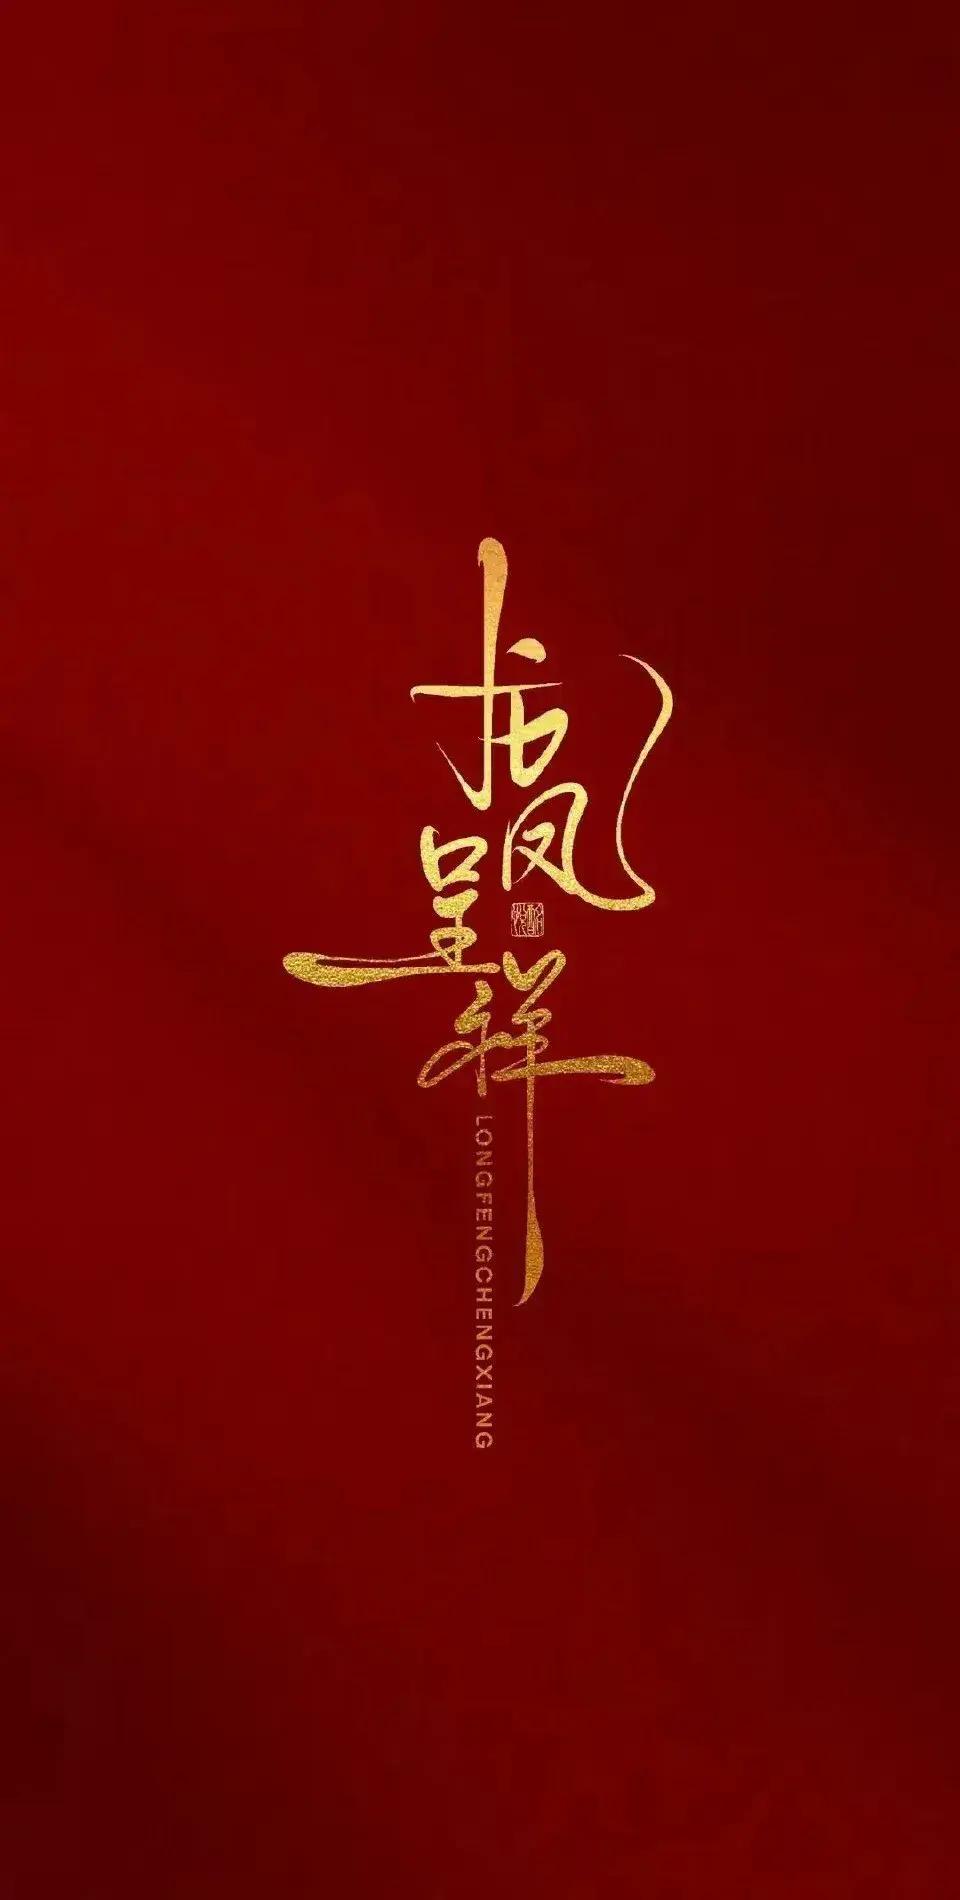 龙凤
呈祥
LONGFENGCHENGXIANG